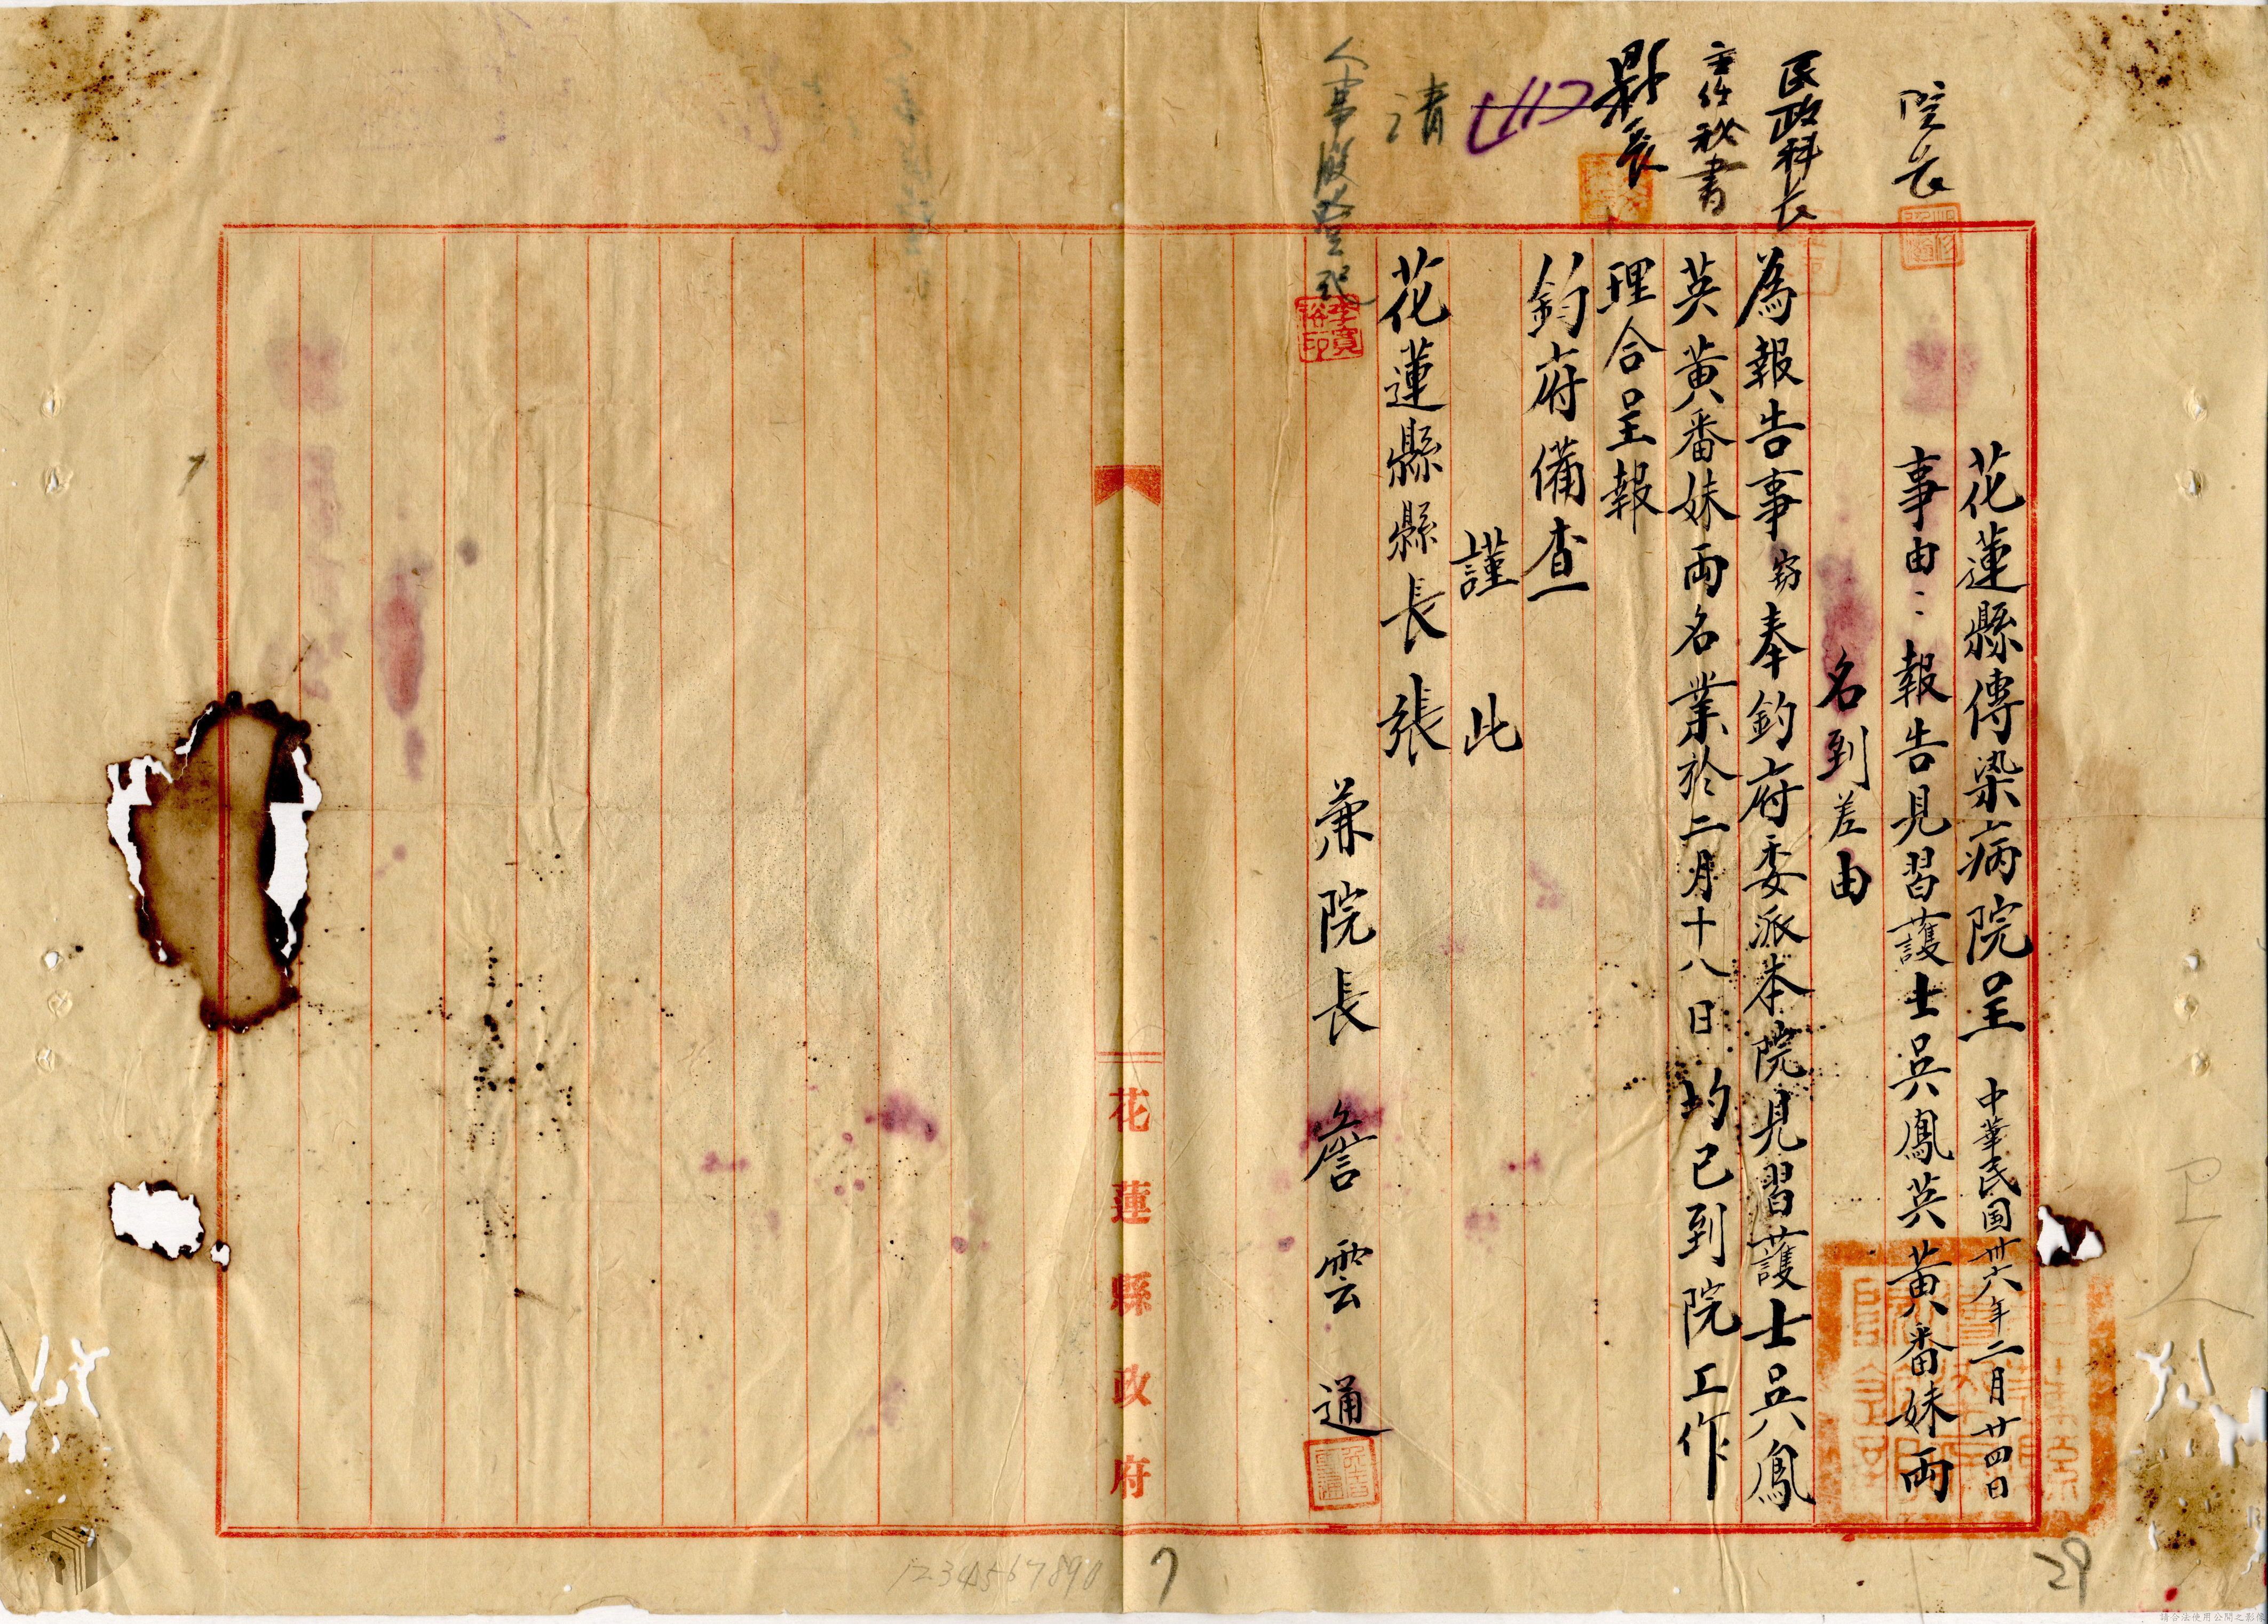 花蓮縣傳染病院呈 中華民国卅六年二月廿四日
事由：報告見習護士吳鳳英黃番妹兩
名到差由
為報告事竊奉鈞府委派本院見習護士吳鳳
英黃番妹兩名業於二月十八日均已到院工作
理合呈報
鈞府備查
謹此
花蓮縣縣長張
兼院長 詹雲通
院長
民政科長
主任秘書
縣長
清
人事股登記
李寬裕印
花蓮縣政府
1234567890
7
29
請合法使用公開之影像